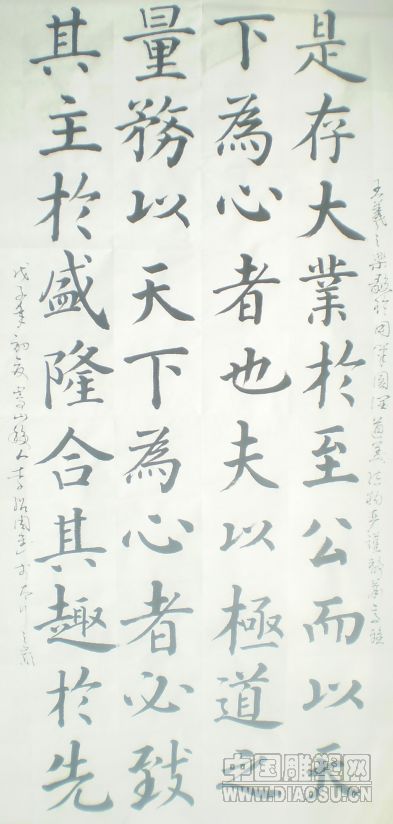 王羲之樂毅
是存大業於至公而以天
下為心者也夫以極道之
量務以天下為心者必致
其主於盛隆合其趣於先
戊子年初夏嵩山
中国雕塑网
WWW.DIAOSU.CN